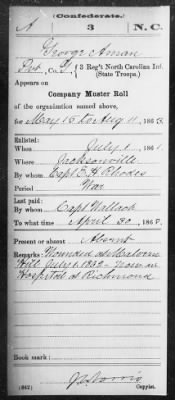 (Confederate.)
A 3 N.C.
George Aman
Pvt, Co. G, 3 Reg't North Carolina Inf.
(State Troops.)
Appears on
Company Muster Roll
of the organization named above,
for May 16 to Aug 11, 1863
Enlisted:
When July 1, 1861
Where Jacksonville
By whom Capt E H Rhodes
Period War
Last paid:
By whom Capt Wallach
To what time April 30, 186
Present or absent Absent
Remarks: Wounded at Malvern
Hill July 1, 1862 - now in
Hospital at Richmond
Book mark:
(642)
Copyist.